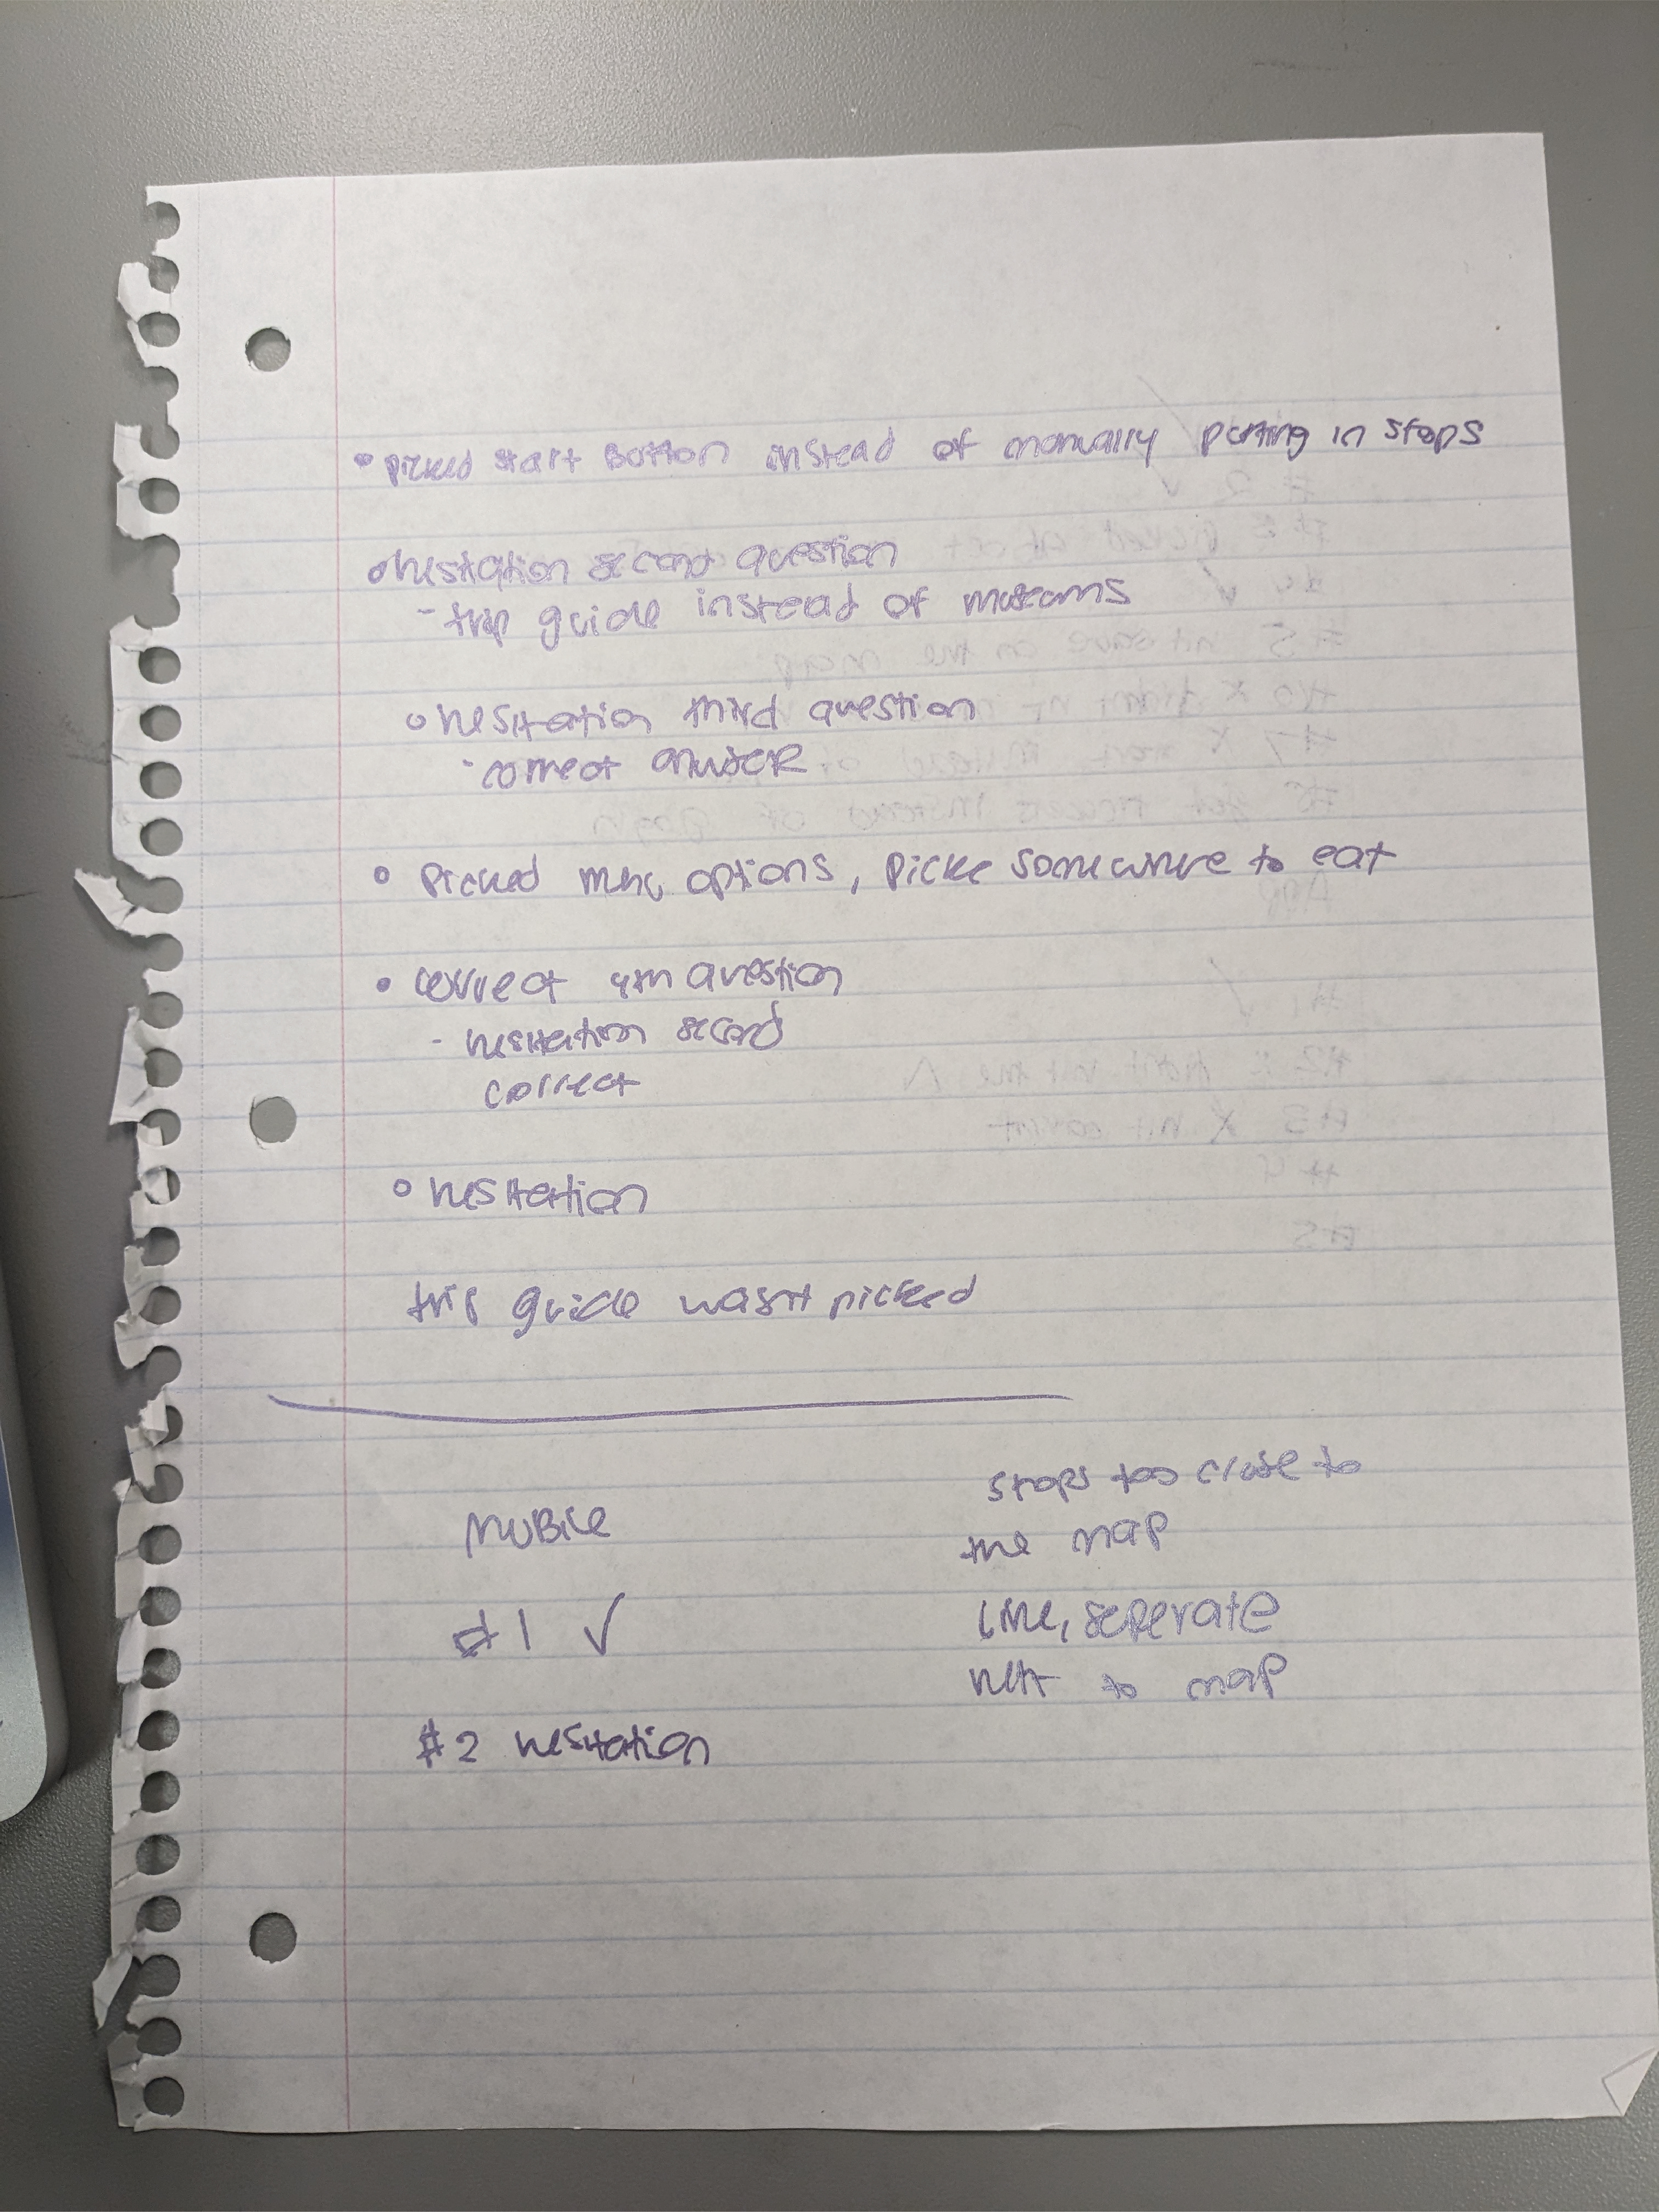 • picked start Button instead of manually putting in stops
• hesitation second question
- trip guide instead of museums
• hesitation third question
- correct answer
• Picked menu options, picke somewhere to eat
• correct 4th question
- hesitation second
correct
• hesitation
trip guide wasn't picked
MOBile
#1 ✓
#2 hesitation
stops too close to
the map
line, seperate
next to map